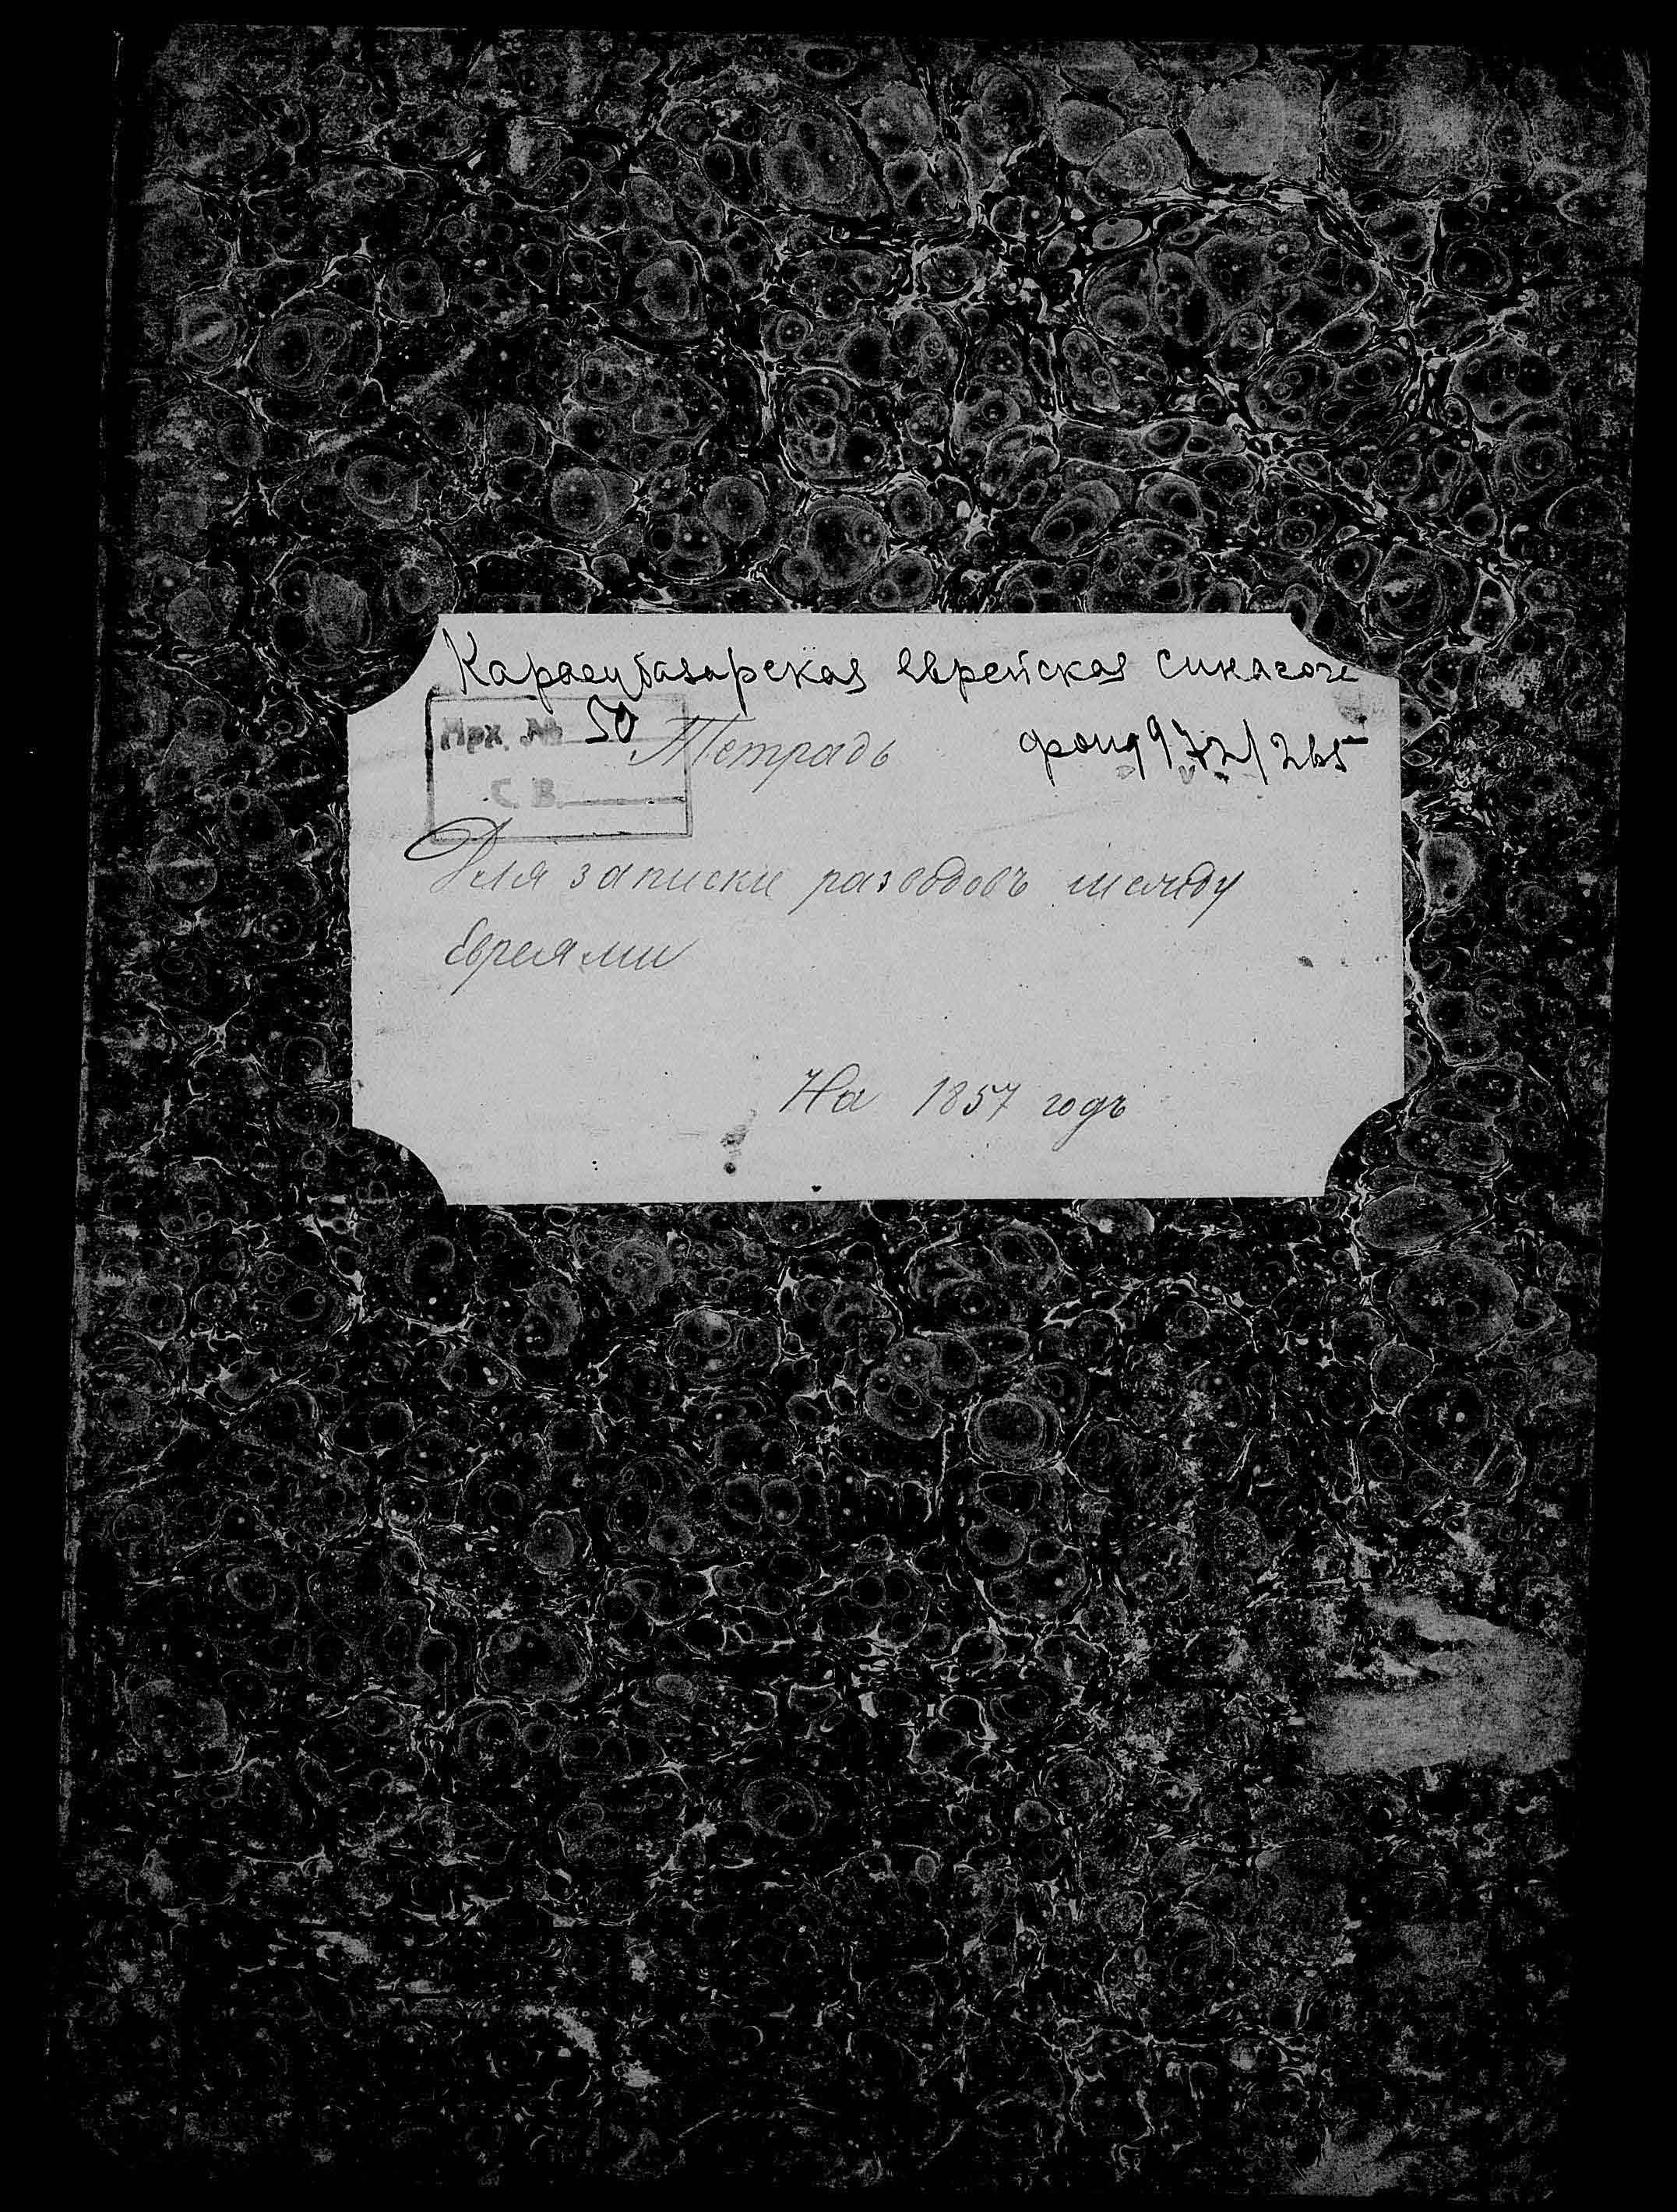 Карасубазарская еврейская синагога
Арх. № 50
Тетрадь
фонд 972/265
С. В.
Для записки разводовъ между
Евреями
На 1857 годъ